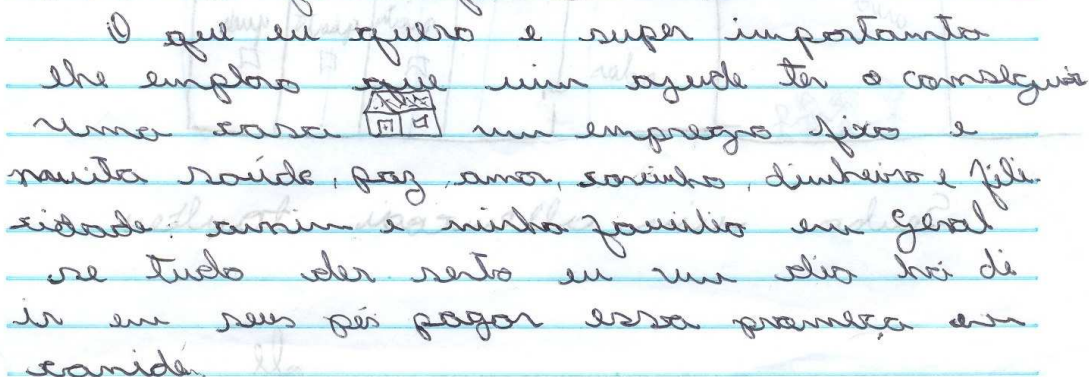 O que eu quero e super importamto
lhe emploro que mim ajude ter o comseguir
uma casa um empregro fixo e
muita saúde, paz, amor, carinho, dinheiro e fili-
cidade. amim e minha familia em geral
se tudo der serto eu um dia hei di
ir em seus pés pagar essa promeça em
canidé.